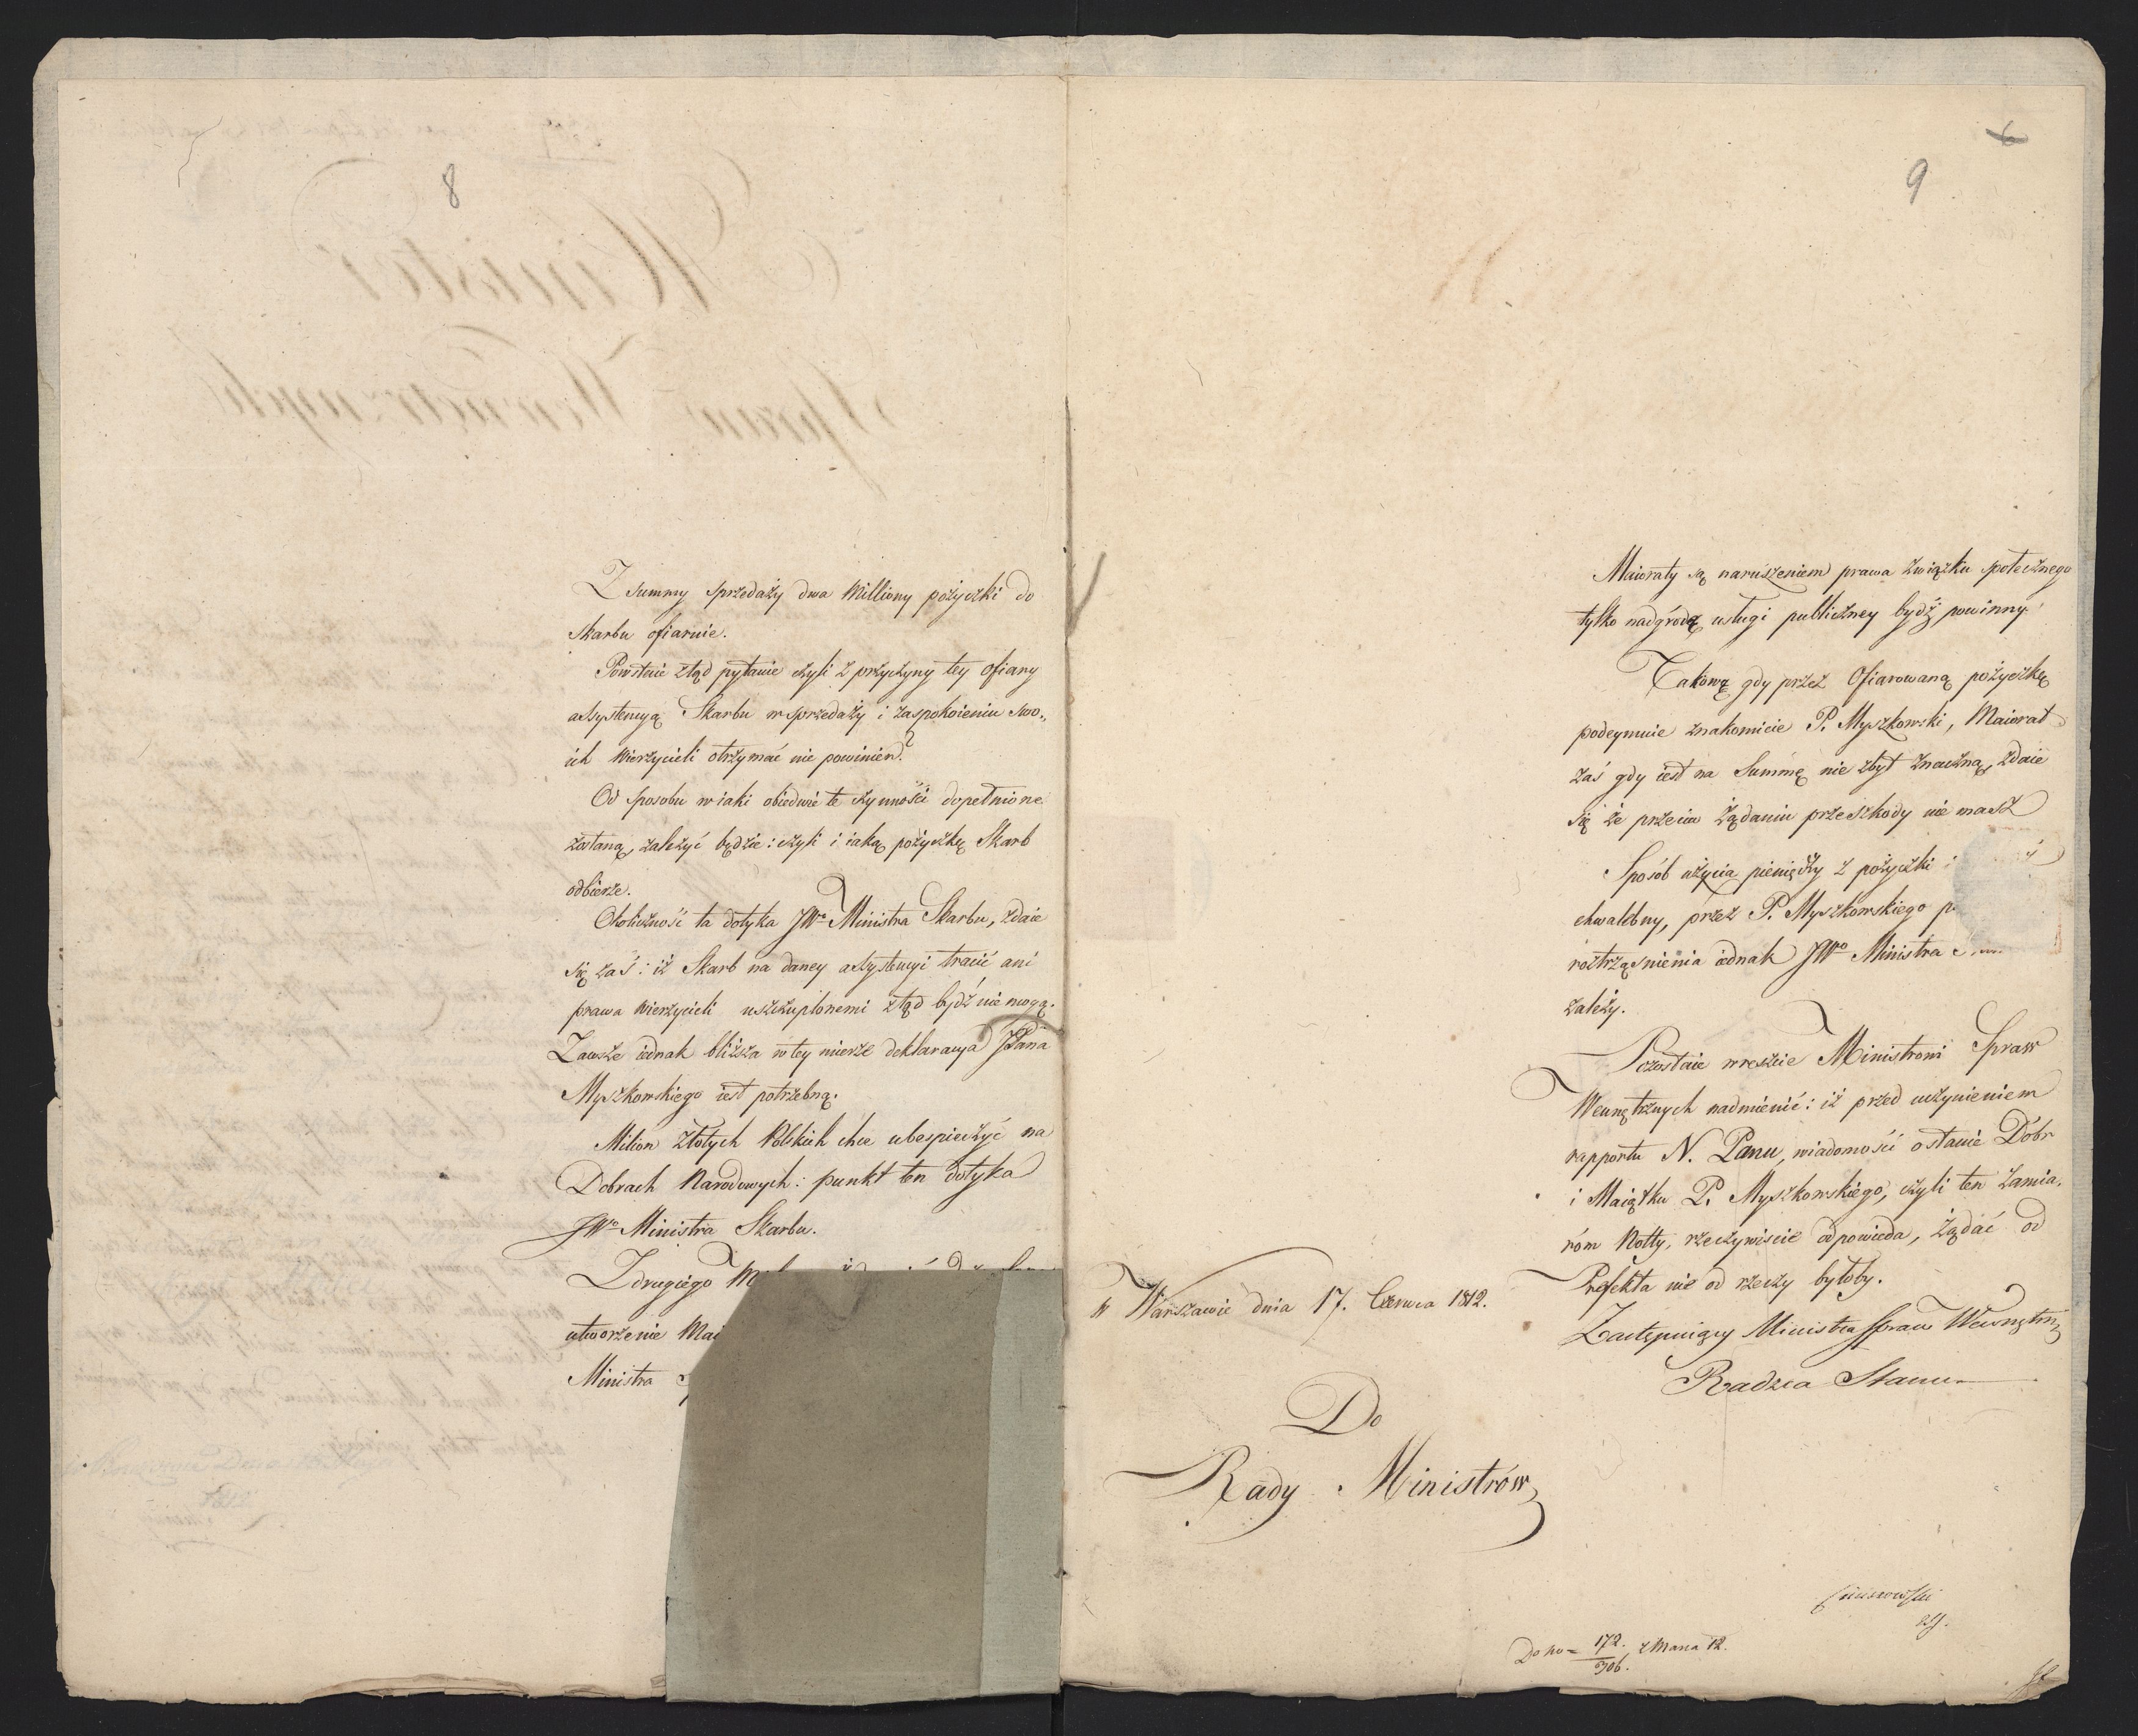 8
Z summy sprzedaży dwa Milliony pożyczki do
skarbu ofiaruie.
Powstaie ztąd pytanie czyli z przyczyny tey ofiary
assystencyą Skarbu w sprzedaży i zaspokoieniu swo„
ich Wierzycieli otrzymać nie powinien?
Od sposobu w iaki obiedwie te czynności dopełnione
zostaną, zależyć będzie: czyli i iaką pożyczkę Skarb
odbierze.
Okoliczność ta dotyka JWo Ministra Skarbu, zdaie
się zaś: iż Skarb na daney assystencyi tracić ani
prawa Wierzycieli uszczuplonemi ztąd bydź nie mogą.
Zawsze iednak bliższa w tey mierze deklaracya JPana
Myszkowskiego iest potrzebną.
Milion Złotych Polskich chce ubespieczyć na
Dobrach Narodowych: punkt ten dotyka
JWo Ministra Skarbu.
Z drugiego
utworzenie Mai
Ministra
6
9
Maioraty są naruszeniem prawa związku społecznego
tylko nadgrodą usługi publiczney bydź powinny.
Takową gdy przez Ofiarowaną pożyczkę
podeymuie znakomicie P. Myszkowski, Maiorat
zaś gdy iest na Summę nie zbyt znaczną, zdaie
się że przeciw żądaniu przeszkody nie masz
Sposób użycia pieniędzy z pożyczki
chwalebny, przez P. Myszkowskiego p.
roztrząśnienia iednak JWo Ministra
zależy.
Pozostaie wreszcie Ministrowi Spraw
Wewnętrznych nadmienić: iż przed uczynieniem
rapportu N. Panu, wiadomości o stanie Dóbr
i Maiątku P. Myszkowskiego, czyli ten zamia„
róm Notty, rzeczywiście odpowieda, żądać od
Prefekta nie od rzeczy byłoby.
Zastępuiący Ministra Spraw Wewnętrz
Radzca Stanu
w Warszawie dnia 17. Czerwca 1812.
Do
Rady Ministrów
Do No = 172./306. z Marca 12.